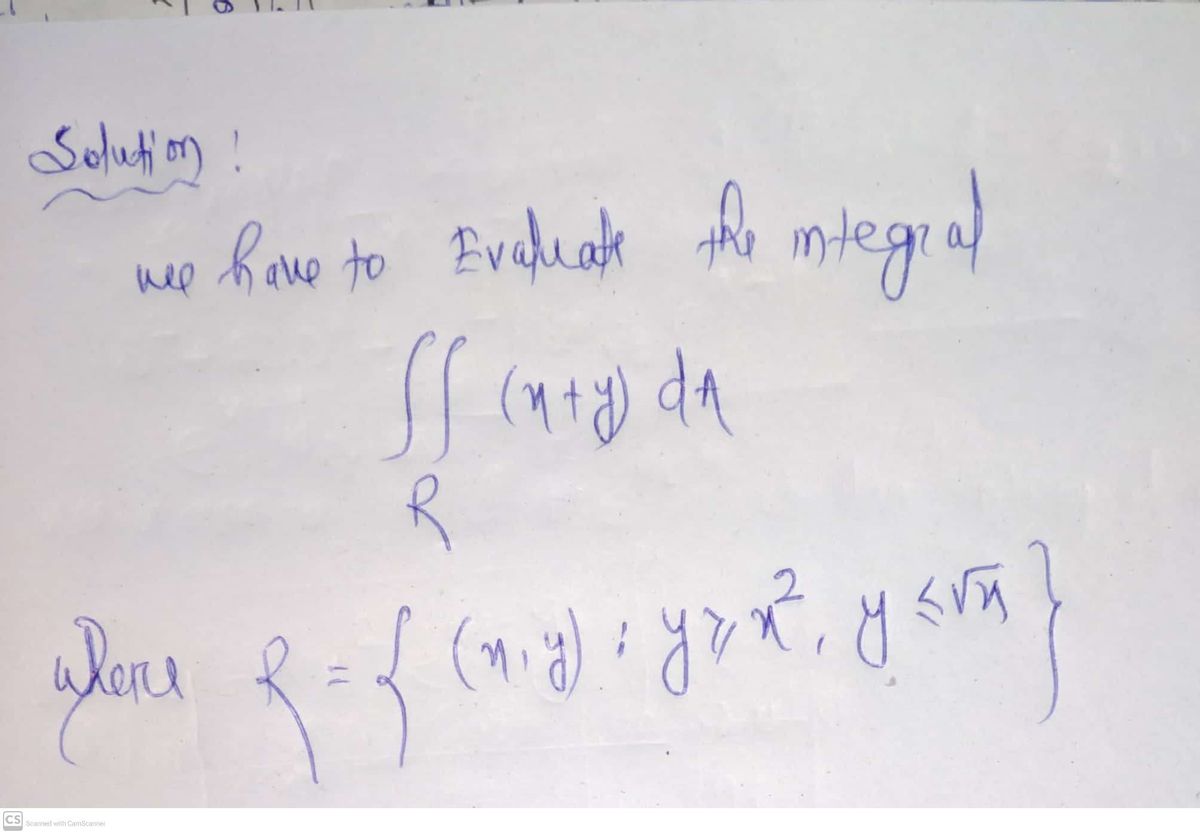 Solution :
we have to Evaluate the integral
∬ (x+y) dA
R
where R = { (x,y) : y ≥ x², y ≤ √x }
CS Scanned with CamScanner